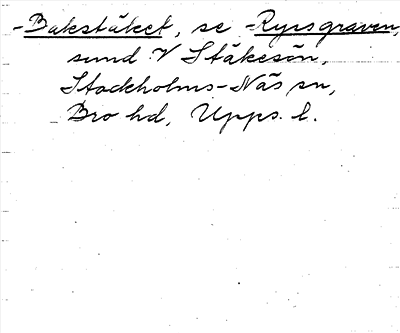 -Bakstäket, se -Ryssgraven,
sund V Stäkesön,
Stockholms-Näs sn,
Bro hd, Upps. l.